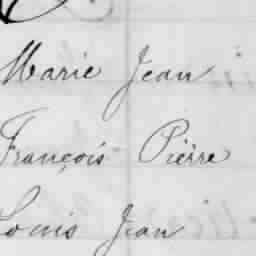 Marie Jean
François Pierre
Louis Jean